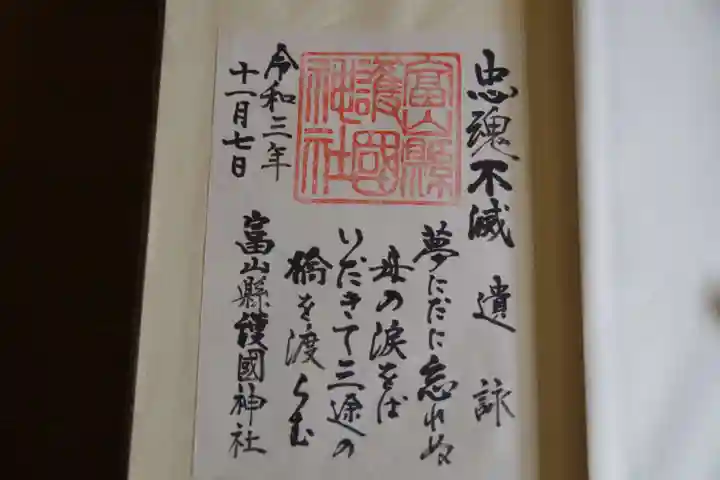 忠魂不滅 遺詠
夢にだに忘れぬ
母の涙をば
いだきて三途の
橋を渡らむ
富山縣
護國
神社
令和三年
十一月七日
富山縣護國神社